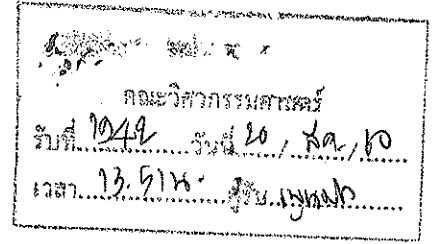 คณะวิศวกรรมศาสตร์
รับที่ 1942 วันที่ 20 / สค / 60
เวลา 13.51 น. ผู้รับ